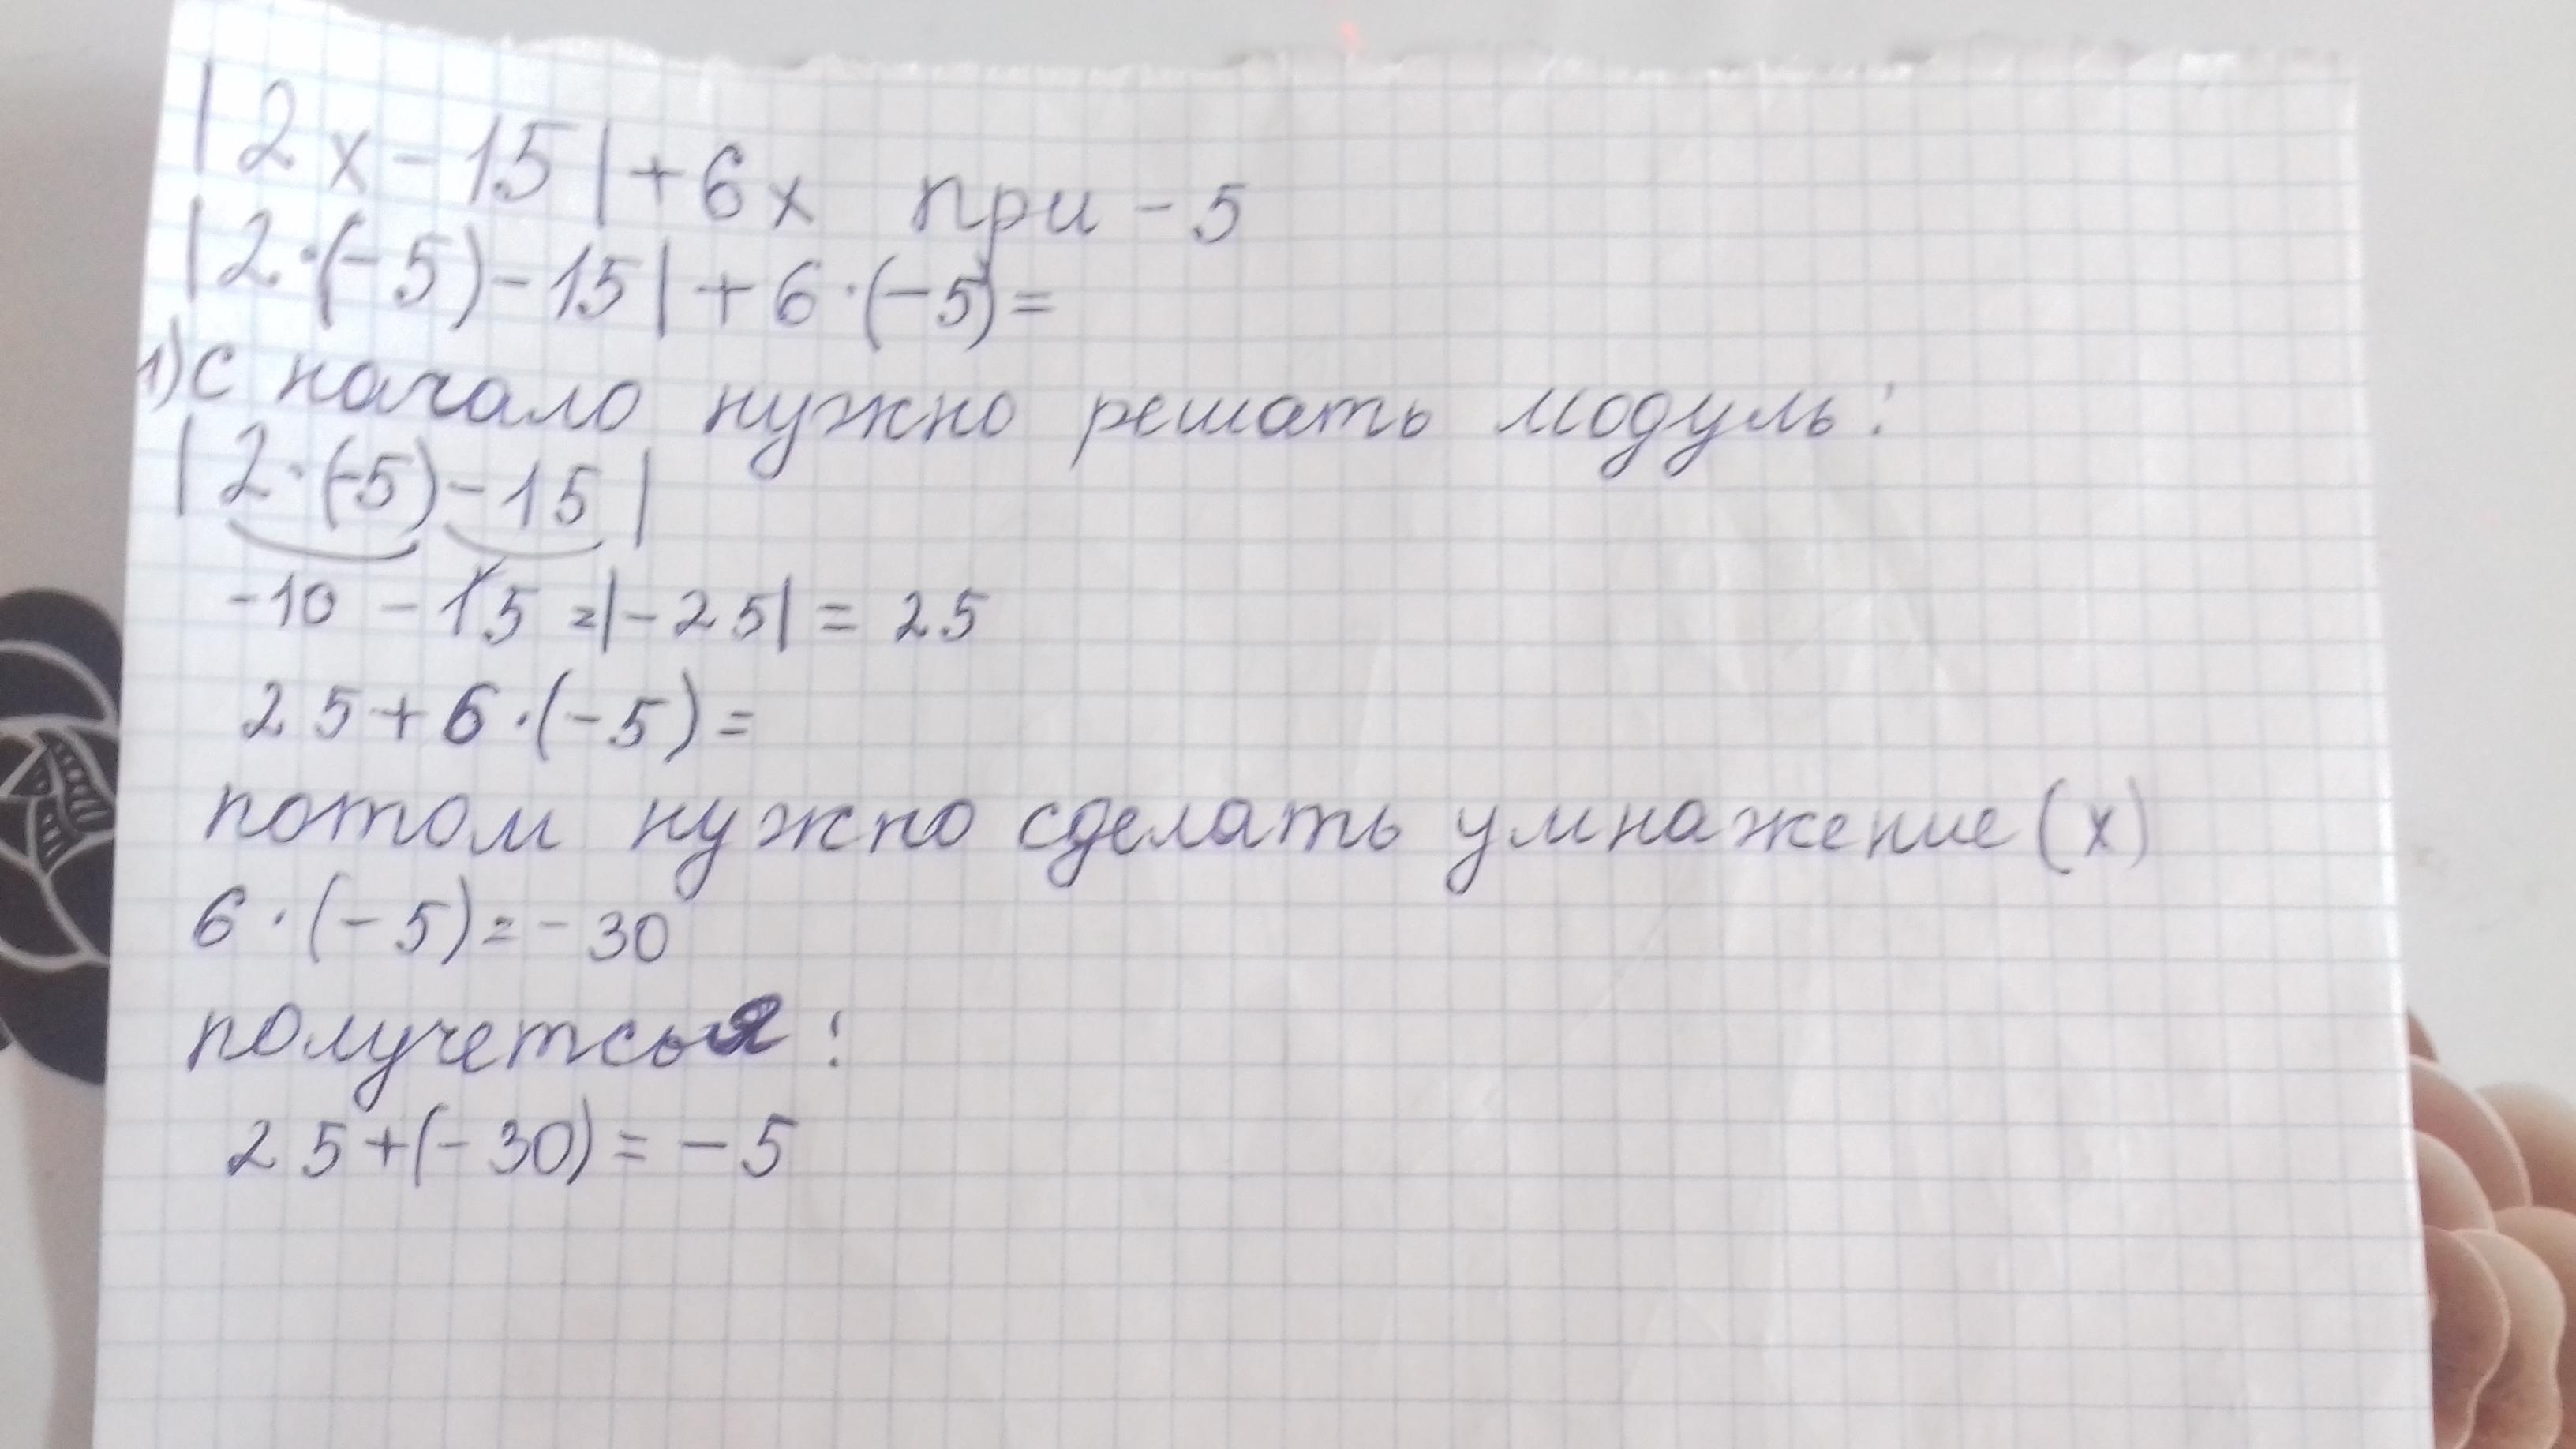 |2x-15|+6x при -5
|2·(-5)-15|+6·(-5)=
1) С начало нужно решать модуль:
|2·(-5)-15|
-10 - 15 =|-25| = 25
25+6·(-5)=
потом нужно сделать умнажение (х)
6·(-5)=-30
получеться:
25+(-30)=-5